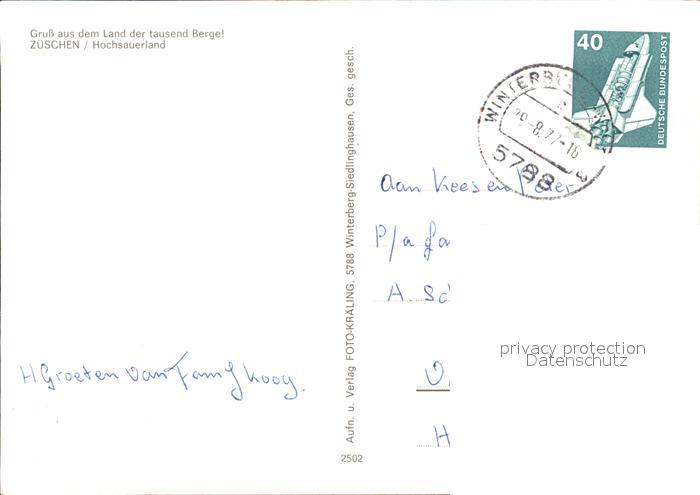 Gruß aus dem Land der tausend Berge!
ZÜSCHEN / Hochsauerland
40
DEUTSCHE BUNDESPOST
WINTERB
29-8.77-16
5788
Aan Kees en Peter
P/a fa
A. Sc
H
H Groeten van Fam J Koog.
Aufn. u. Verlag FOTO-KRÄLING, 5788 Winterberg-Siedlinghausen, Ges. gesch.
2502
privacy protection
Datenschutz